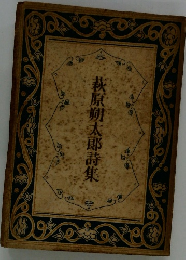 萩原朔太郎詩集